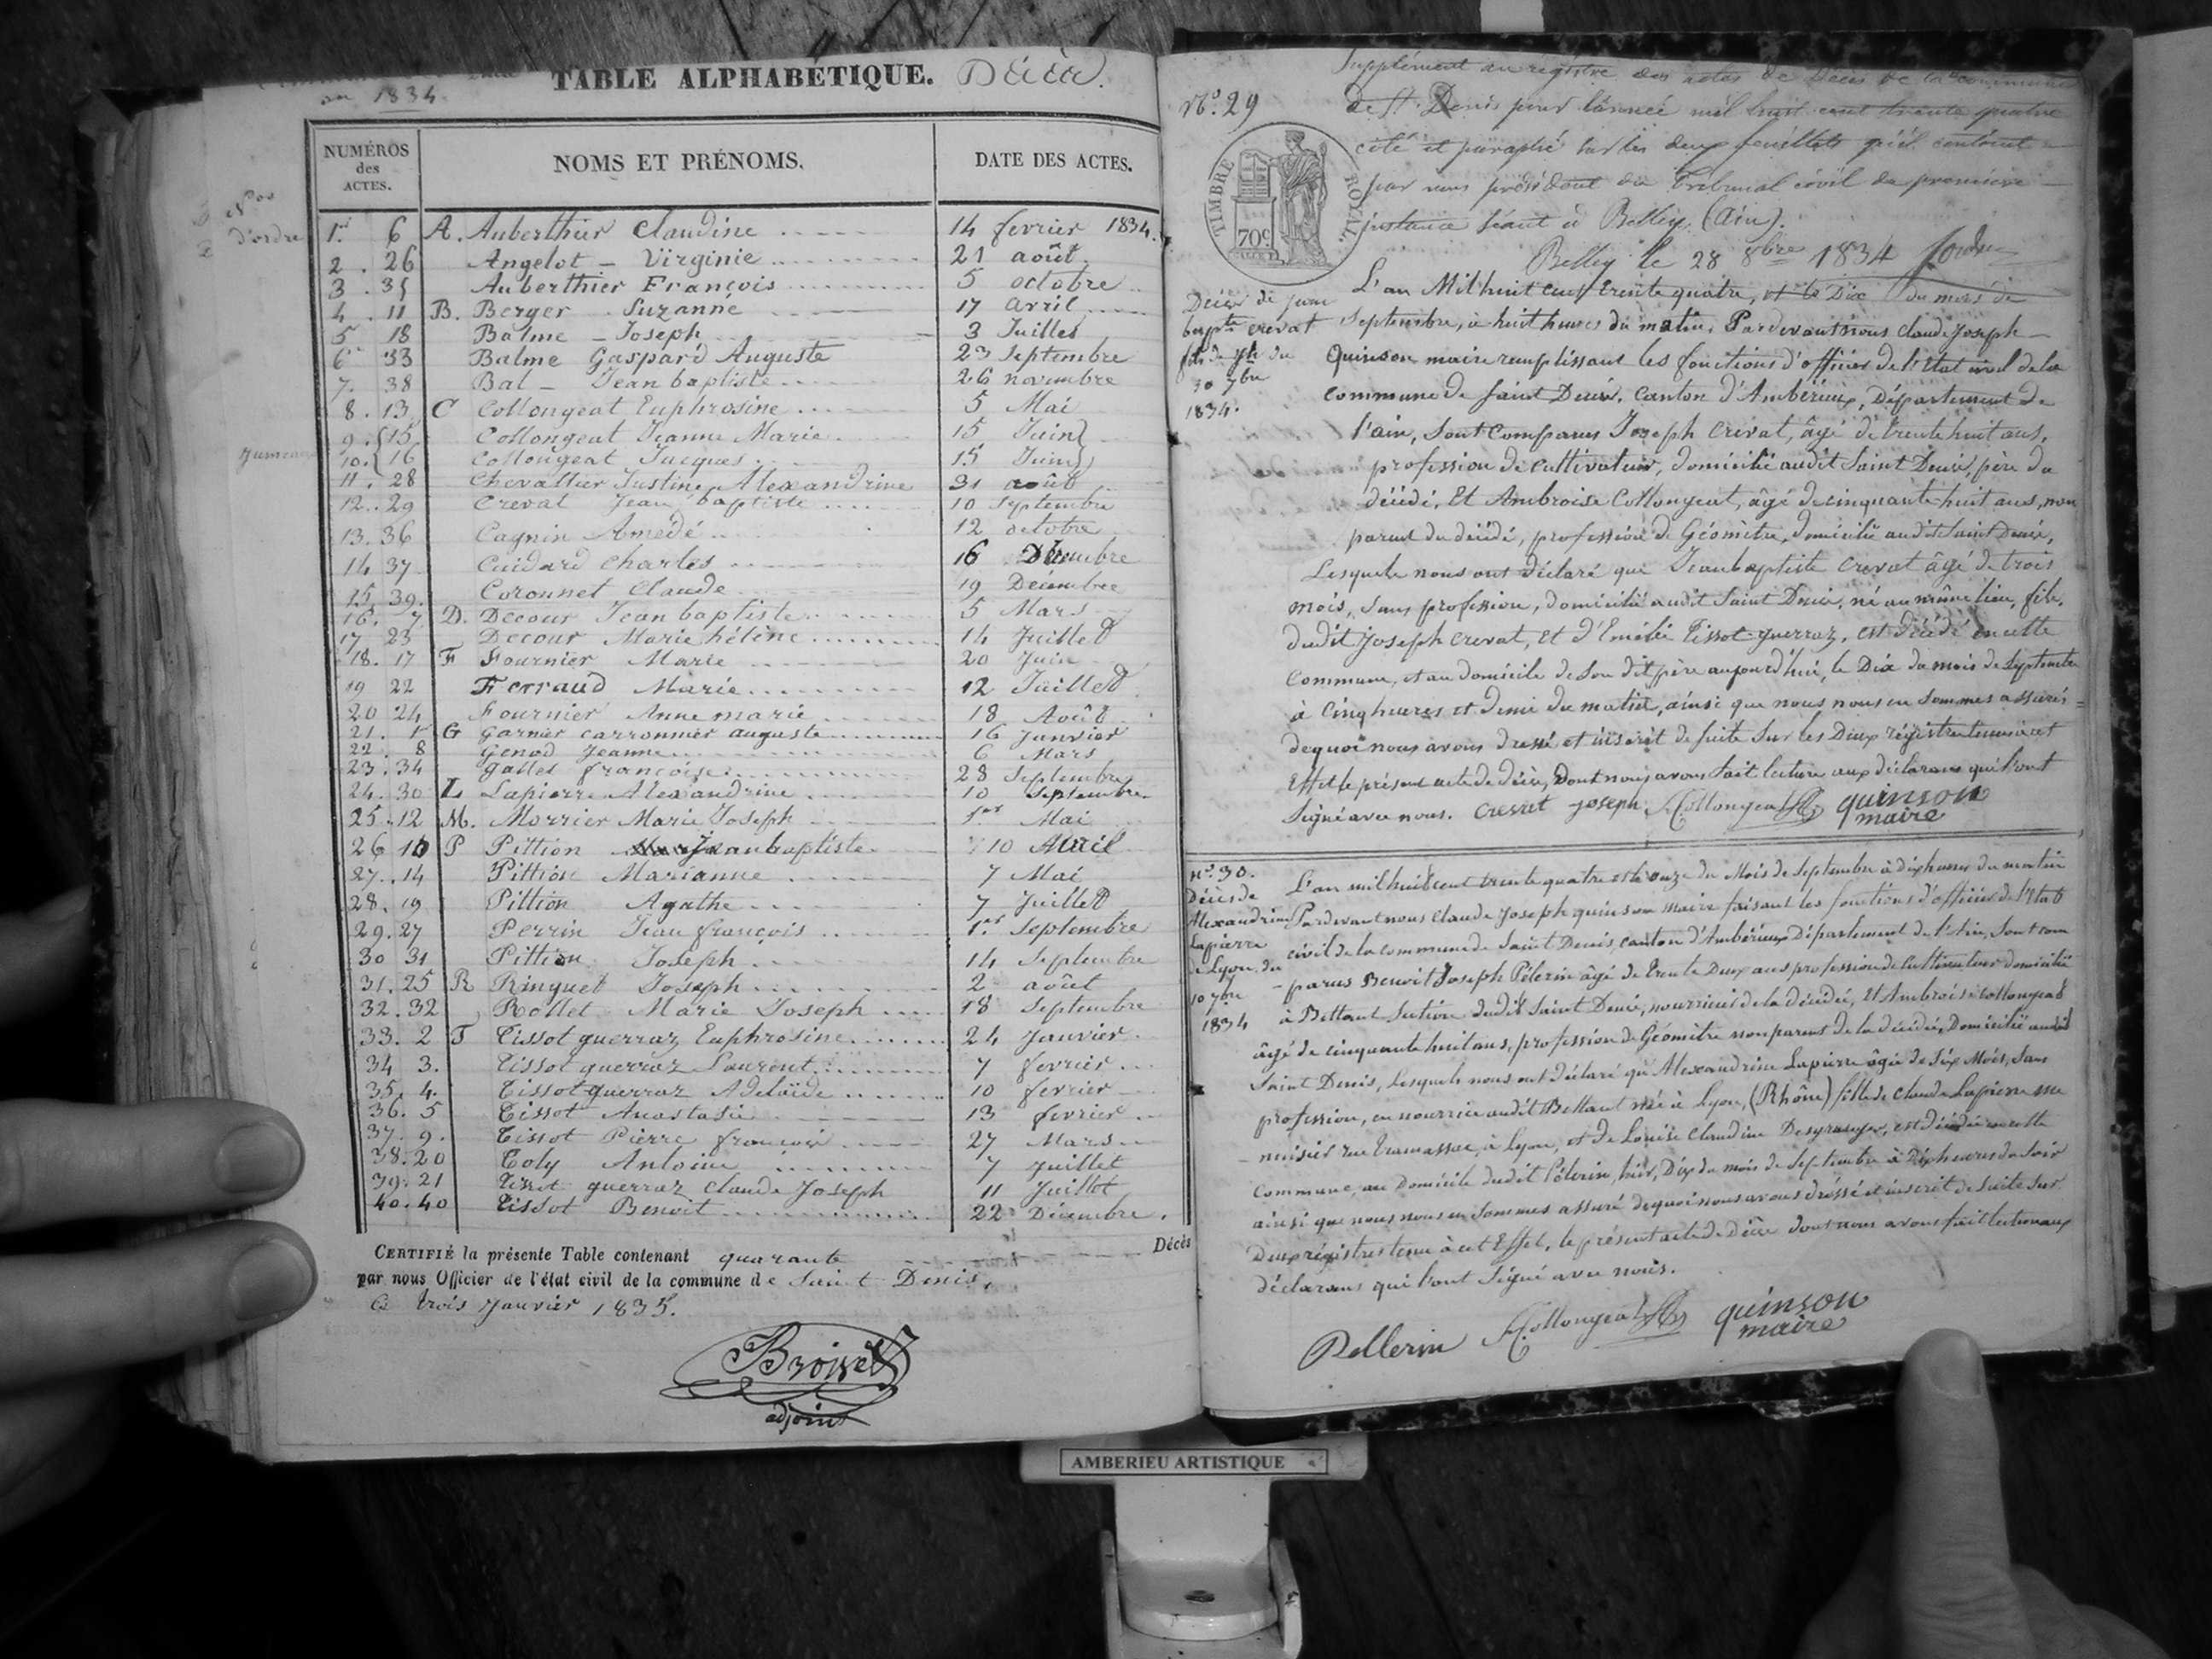 an 1834.
TABLE ALPHABÉTIQUE. Décès.
NUMÉROS des ACTES. NOMS ET PRÉNOMS. DATE DES ACTES.
Nos d'ordre
1er 6 A. Auberthier Claudine 14 fevrier 1834.
2. 26 Angelot - Virginie 21 août
3. 35 Auberthier François 5 octobre
4. 11 B. Berger Suzanne 17 avril
5 18 Balme - Joseph 3 Juillet
6 33 Balme Gaspard Auguste 23 Septembre
7. 38 Bal - Jean baptiste 26 novembre
8. 13 C Collongeat Euphrosine 5 Mai
9. 15 Collongeat Jeanne Marie 15 Juin
jumeaux 10. 16 Collongeat Jacques 15 Juin
11. 28 Chevallier Justine Alexandrine 31 août
12. 29 Crevat Jean baptiste 10 Septembre
13. 36 Cagnin Amédé 12 octobre
14 37 Cuidard Charles 16 Décembre
15 39. Coronnet Claude 19 Décembre
16. 7 D. Decour Jean baptiste 5 Mars
17 23 Decour Marie hélène 14 Juillet
18. 17 F Fournier Marie 20 Juin
19 22 Ferraud Marie 12 Juillet
20 24 Fournier Anne marie 18 Août
21. 1er G Garnier carronnier auguste 16 Janvier
22. 8 Genod Jeanne 6 Mars
23. 34 Gallet françoise 28 Septembre
24. 30 L Lapierre Alexandrine 10 Septembre
25. 12 M. Morrier Marie Joseph 1er Mai
26 10 P Pittion Jean baptiste 10 Avril
27. 14 Pittion Marianne 7 Mai
28. 19 Pittion Agathe 7 Juillet
29. 27 Perrin Jean françois 1er Septembre
30 31 Pittion Joseph 14 Septembre
31. 25 R Ringuet Joseph 2 août
32. 32 Rollet Marie Joseph 18 Septembre
33. 2 T Tissot guerraz Euphrosine 24 Janvier
34 3. Tissot guerraz Laurent 7 fevrier
35. 4. Tissot guerraz Adelaïde 10 fevrier
36. 5 Tissot Anastasie 13 fevrier
37. 9. Tissot Pierre françois 27 Mars
38. 20 Toly Antoine 7 Juillet
39. 21 Tissot guerraz Claude Joseph 11 Juillet
40. 40 Tissot Benoit 22 Décembre.
CERTIFIÉ la présente Table contenant quarante Décès
par nous Officier de l'état civil de la commune de Saint Denis,
Ce trois Janvier 1835.
Broisset
adjoint
Supplément au registre des actes de Décès de la commune
No. 29 de St. Denis pour l'année mil huit cent trente quatre
coté et paraphé sur les deux feuillets qu'il contient
par nous président du Tribunal civil de premiere
instance séant à Belley (Ain).
Belley le 28 8bre 1834
TIMBRE ROYAL.
70c
Décès de Jean baptte crevat fils de Jh du 10 7bre 1834.
L'an Mil huit cent trente quatre, et le Dix du mois de
Septembre, à huit heures du matin, Pardevant nous Claude Joseph
Quinson maire remplissant les fonctions d'officier de l'Etat civil de la
commune de Saint Denis, Canton d'Ambérieux, Département de
l'ain, sont comparus Joseph Crevat, âgé de trente huit ans,
profession de Cultivateur, domicilié audit Saint Denis, père du
décédé, Et Ambroise Collongeat, âgé de cinquante-huit ans, non
parent du décédé, profession de Géomètre, domicilié audit Saint Denis,
Lesquels nous ont déclaré que Jean baptiste Crevat âgé de trois
mois, sans profession, domicilié audit Saint Denis, né au même lieu, fils
dudit Joseph Crevat, et d'Emélie Tissot-guerraz, est décédé en cette
Commune, et au domicile de son dit père aujourd'hui, le Dix du mois de Septembre
à cinq heures et demie du matin, ainsi que nous nous en sommes assurés
de quoi nous avons dressé et inscrit de suite sur les Deux registres tenus à cet
Effet le présent acte de décès, Dont nous avons fait lecture aux déclarans qui l'ont
Signé avec nous. Crevat joseph Collongeat quinson
maire
No. 30.
Décès de Alexandrine Lapierre de Lyon, du 10 7bre 1834
L'an mil huit cent trente quatre et le onze du Mois de Septembre à dix heures du matin
Pardevant nous Claude Joseph quinson maire faisant les fonctions d'officier de l'Etat
civil de la commune de Saint Denis, canton d'Ambérieux Département de l'Ain, Sont com
parus Benoit Joseph Pélerin âgé de trente Deux ans profession de Cultivateur domicilié
à Bettant Section dudit Saint Denis, nourricier de la décédée, Et Ambroise Collongeat
âgé de cinquante huit ans, profession de Géomètre non parent de la décédée, Domicilié audit
Saint Denis, Lesquels nous ont déclaré qu'Alexandrine Lapierre âgée de Six Mois, Sans
profession, en nourrice audit Bettant née à Lyon, (Rhône) fille de Claude Lapierre me
nuisier rue tramassac, à Lyon, et de Louise Claudine Desgranges, est décédée en cette
Commune, au Domicile dudit Pélerin, hier, Dix du mois de Septembre à Dix heures du Soir
ainsi que nous nous en Sommes assuré de quoi nous avons dréssé et inscrit de suite sur
Deux régistres tenus à cet Effet, le présent acte de Décès dont nous avons fait lecture aux
déclarans qui l'ont Signé avec nous.
Pellerin Collongeat quinson
maire
AMBERIEU ARTISTIQUE